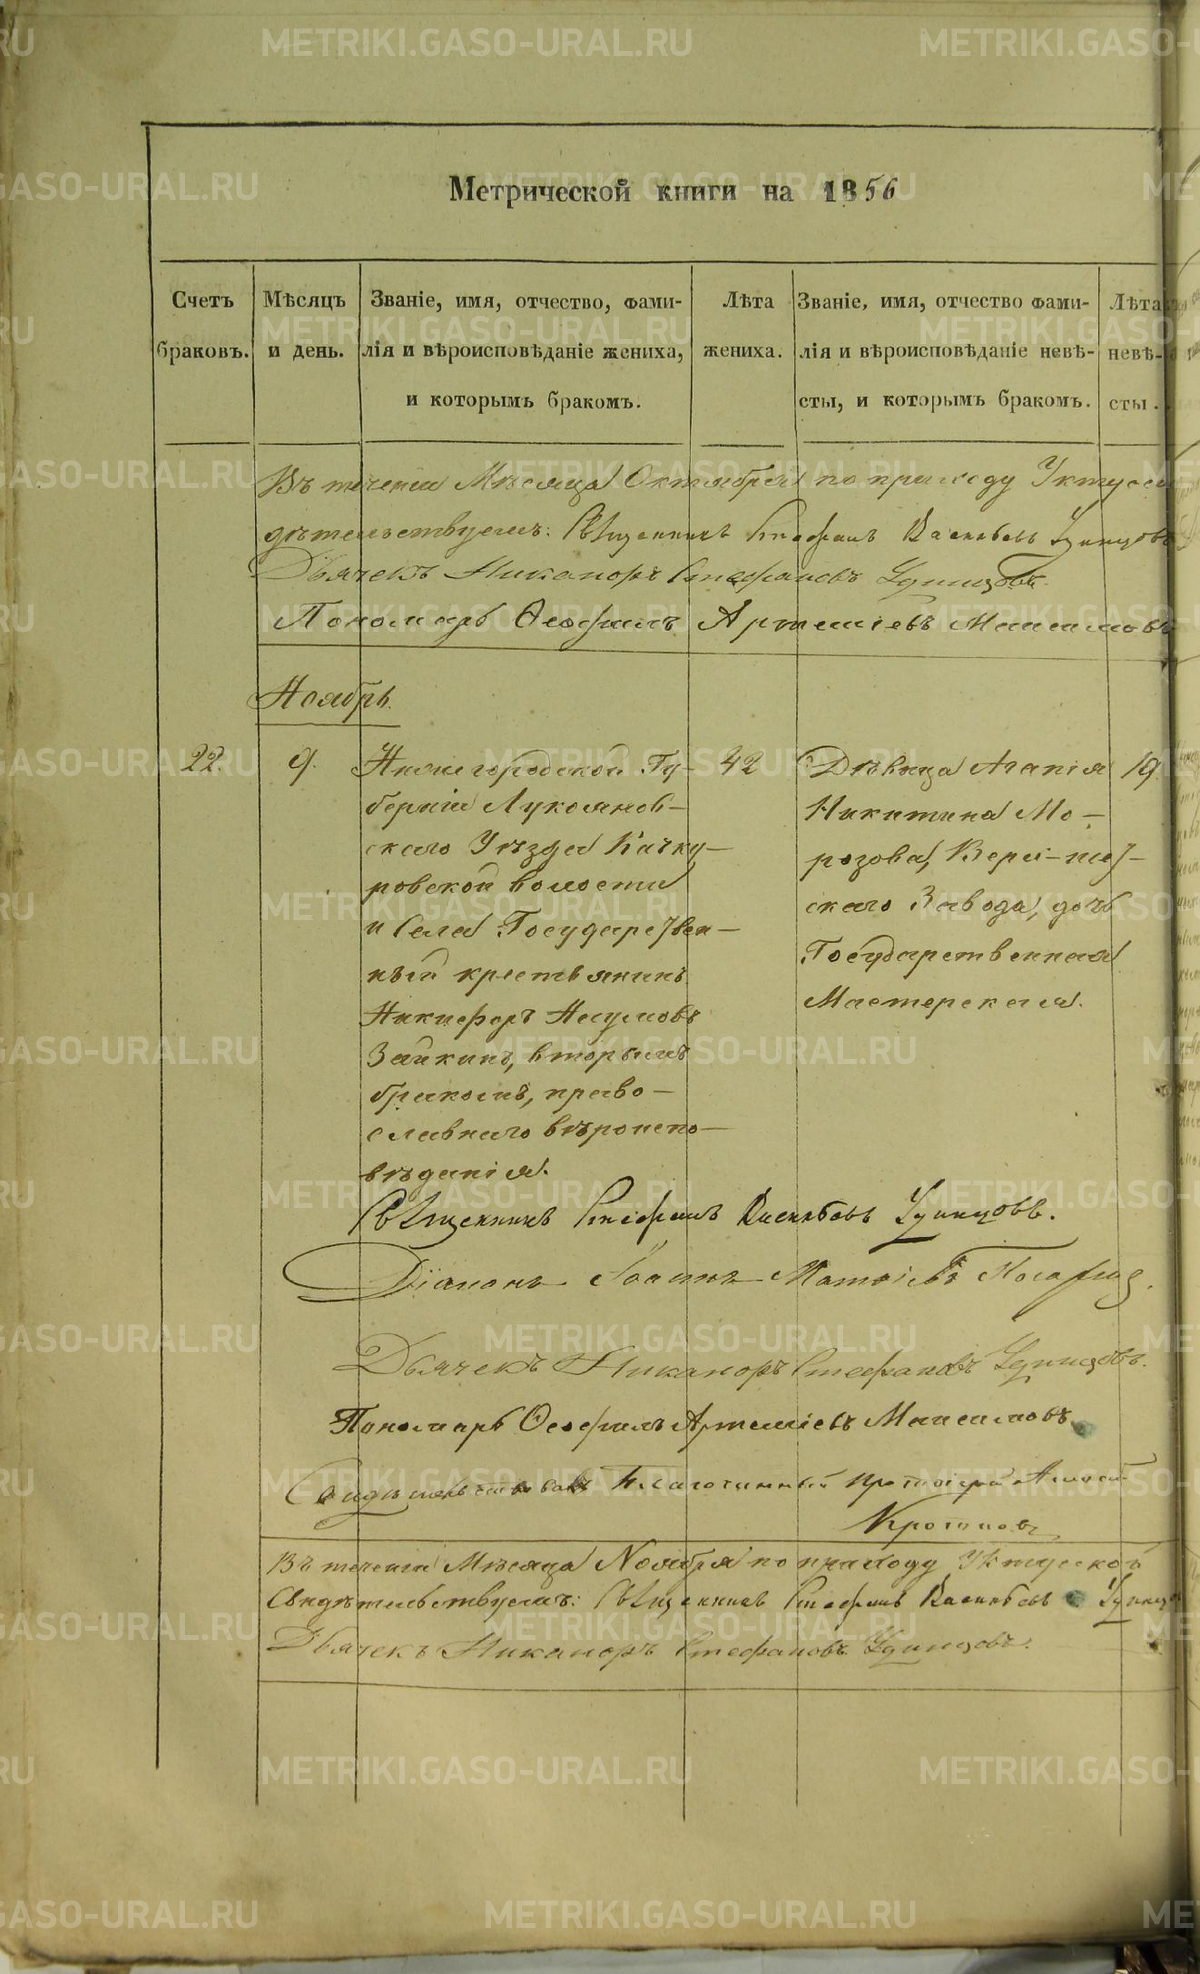 Метрической книги на 1856
Счетъ браковъ.
Мѣсяцъ и день.
Званіе, имя, отчество, фами-
лія и вѣроисповѣданіе жениха,
и которымъ бракомъ.
Лѣта жениха.
Званіе, имя, отчество фами-
лія и вѣроисповѣданіе невѣ-
сты, и которымъ бракомъ.
Лѣта невѣ-
сты.
Въ теченіи Мѣсяца Октября по приходу Уктусс
дѣтельствуемъ: Священникъ Стефанъ Васильевъ Удинцовъ
Дьячекъ Никаноръ Стефановъ Удинцовъ.
Пономарь Ѳеофилъ Артеміевъ Максимовъ
Ноябрь.
22. 9.
Нижегородской Гу-
берніи Лукоянов-
скаго Уѣзда Качку-
ровской волости
и Села Государствен-
ный крестьянинъ
Никифоръ Наумовъ
Заикинъ, вторымъ
бракомъ, право-
славнаго вѣроиспо-
вѣданія.
42
Дѣвица Агапія
Никитина Мо-
розова, Верх-
скаго Завода, дочь
Государственная
Мастерская.
19
Священникъ Стефанъ Васильевъ Удинцовъ.
Діаконъ Іоаннъ Матвіевъ
Дьячекъ Никаноръ Стефановъ Удинцовъ.
Пономарь Ѳеофилъ Артеміевъ Максимовъ
Свидѣтельствовалъ Благочинный Протоіерей
Въ теченіи Мѣсяца Ноября по приходу Уктусской
Свидѣтельствуемъ: Священникъ Стефанъ Васильевъ Удинцо
Дьячекъ Никаноръ Стефановъ Удинцовъ.
METRIKI.GASO-URAL.RU